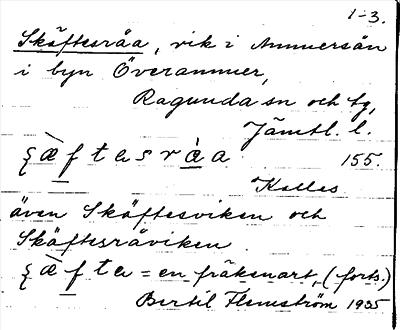 1-3.
Skäftesråa, vik i Ammersån
i byn Överammer,
Ragunda sn och tg,
Jämtl. l.
155.
Kallas
även Skäftesviken och
Skäftesråviken.
= en fräkenart, (forts.)
Bertil Flemström 1935